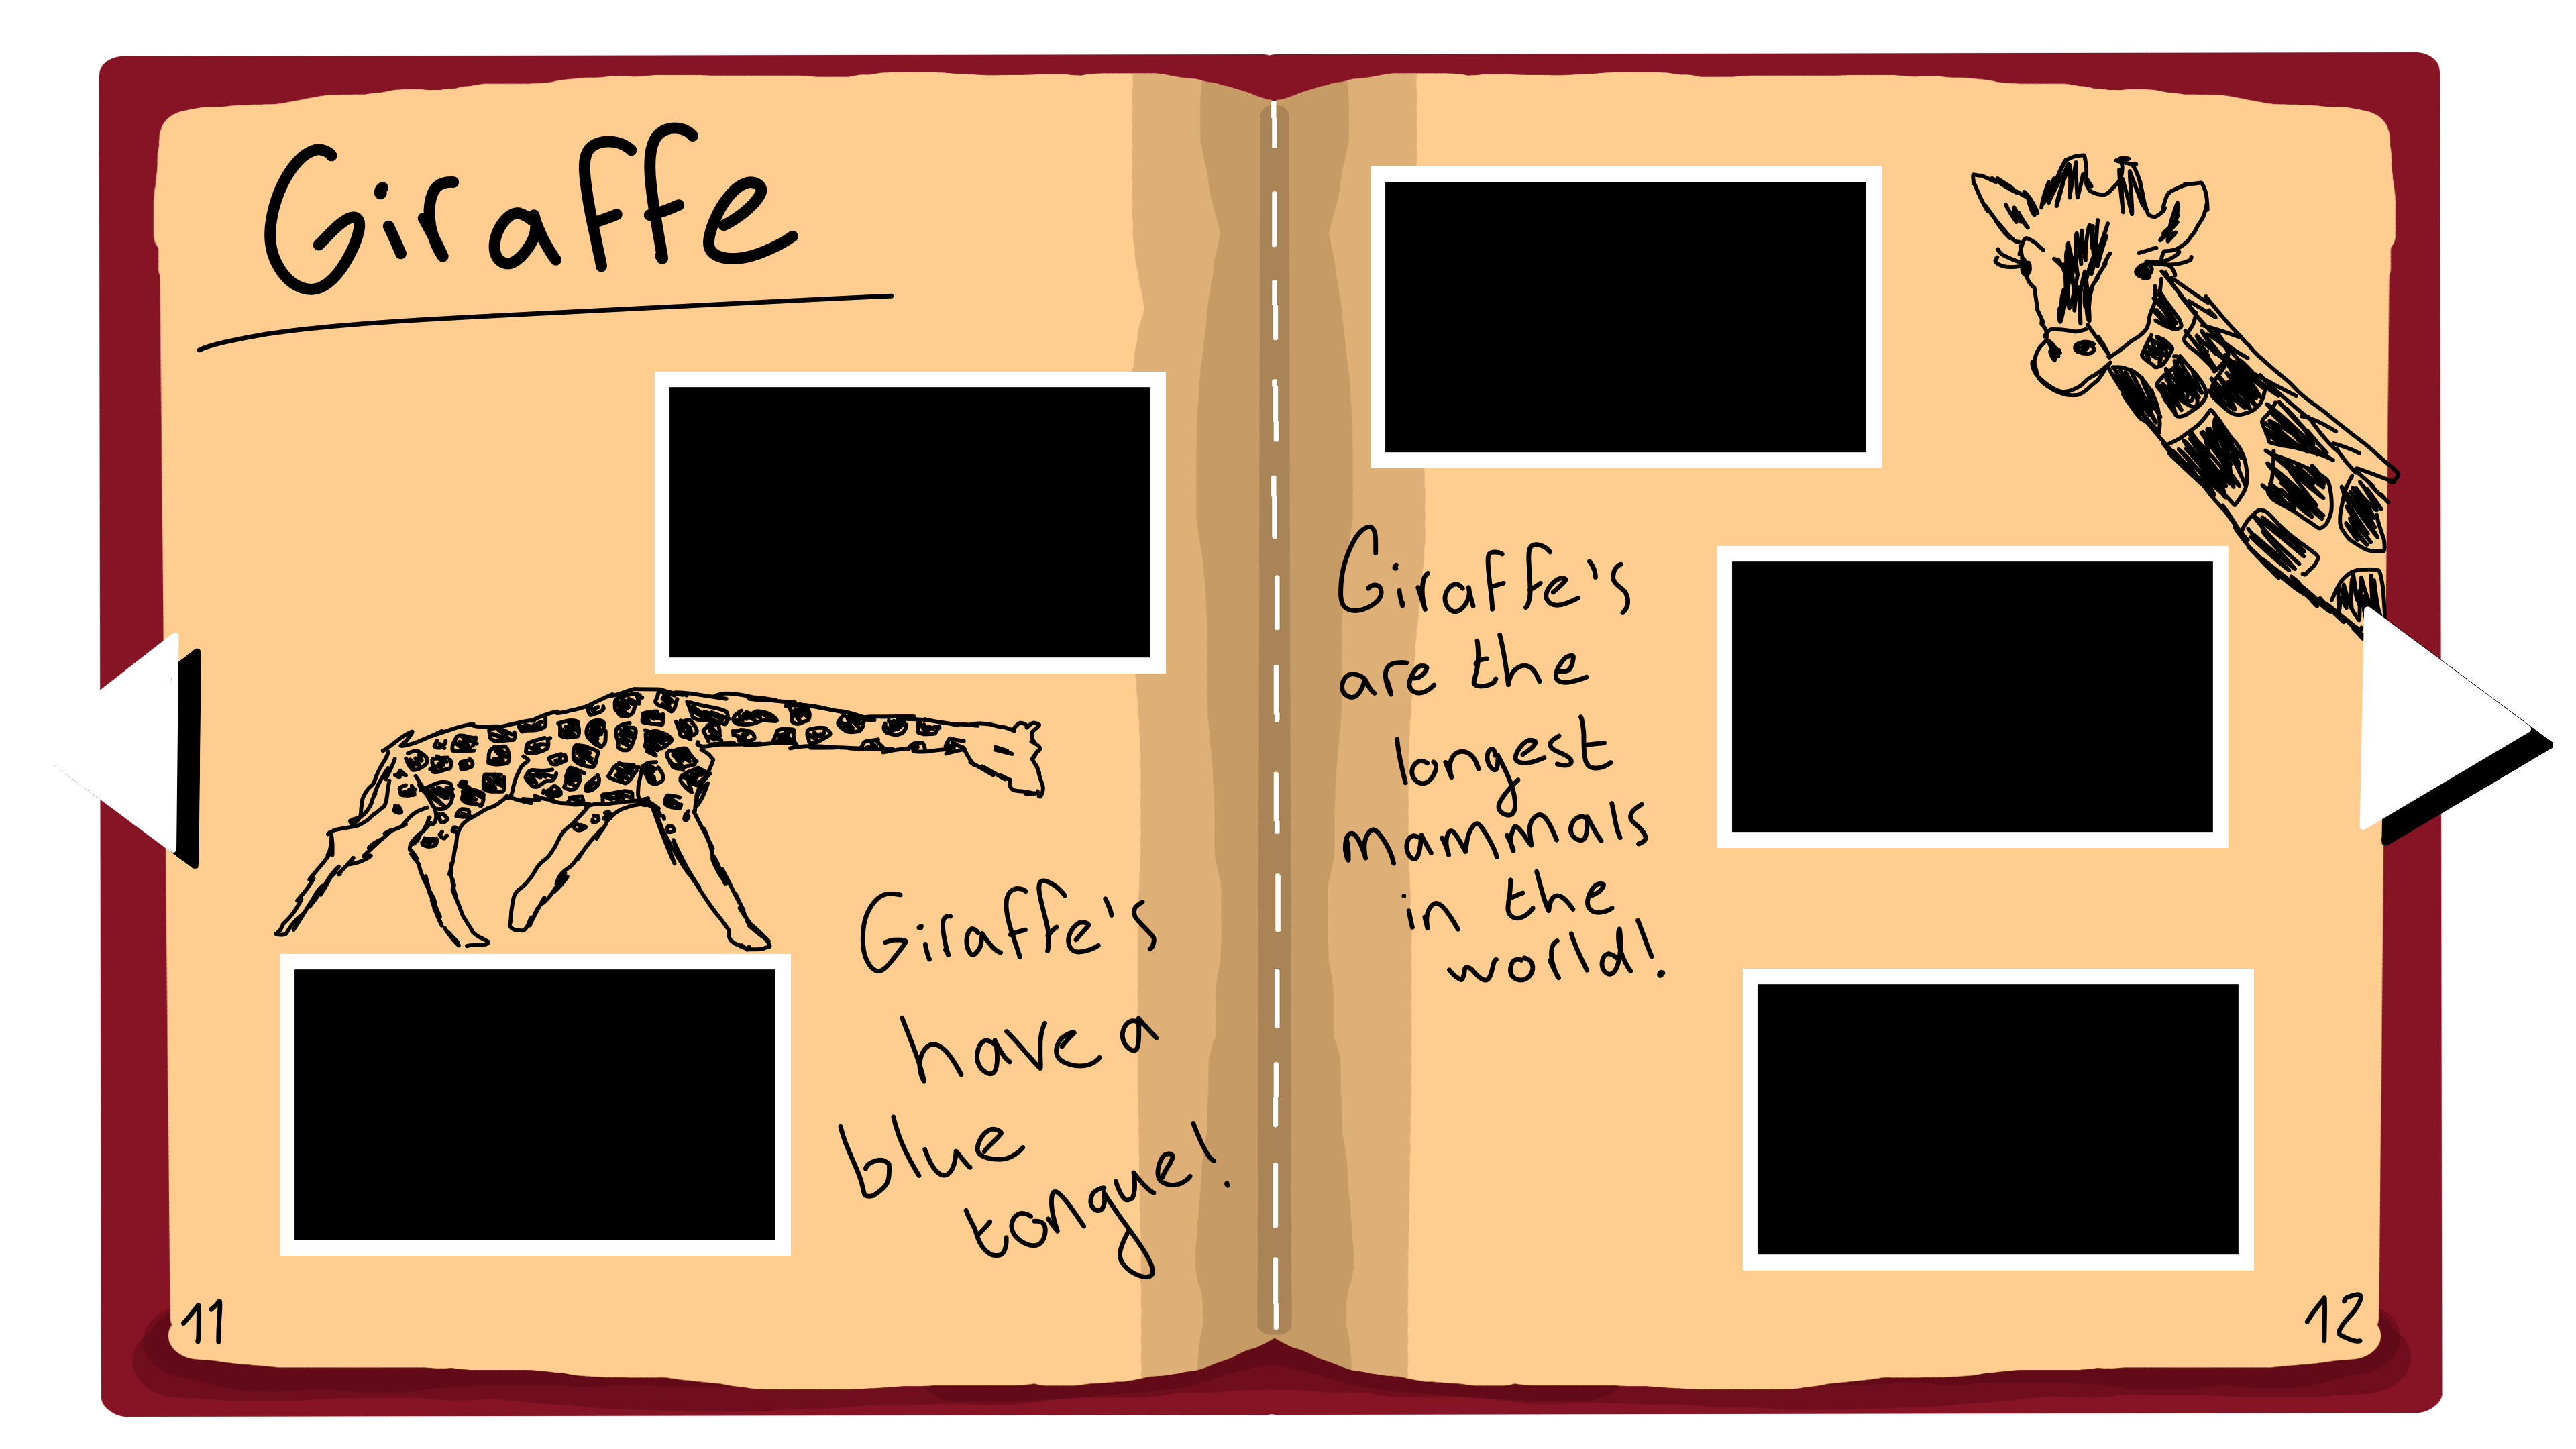 Giraffe
Giraffe's
have a
blue
tongue!
11
Giraffe's
are the
longest
mammals
in the
world!
12